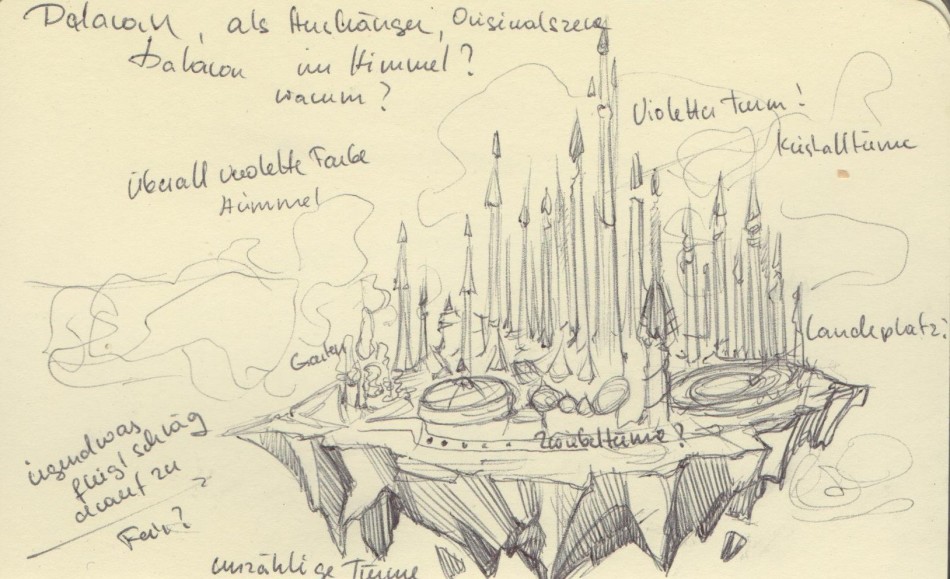 Dalaran, als Anhänger, Originalszene
Dalaran im Himmel?
warum?
Violetter Turm!
Kristalltürme
Überall violette Farbe
Himmel
Landeplatz?
Garten
Zwiebeltürme?
irgendwas
fliegt schräg
drauf zu
?
unzählige Türme